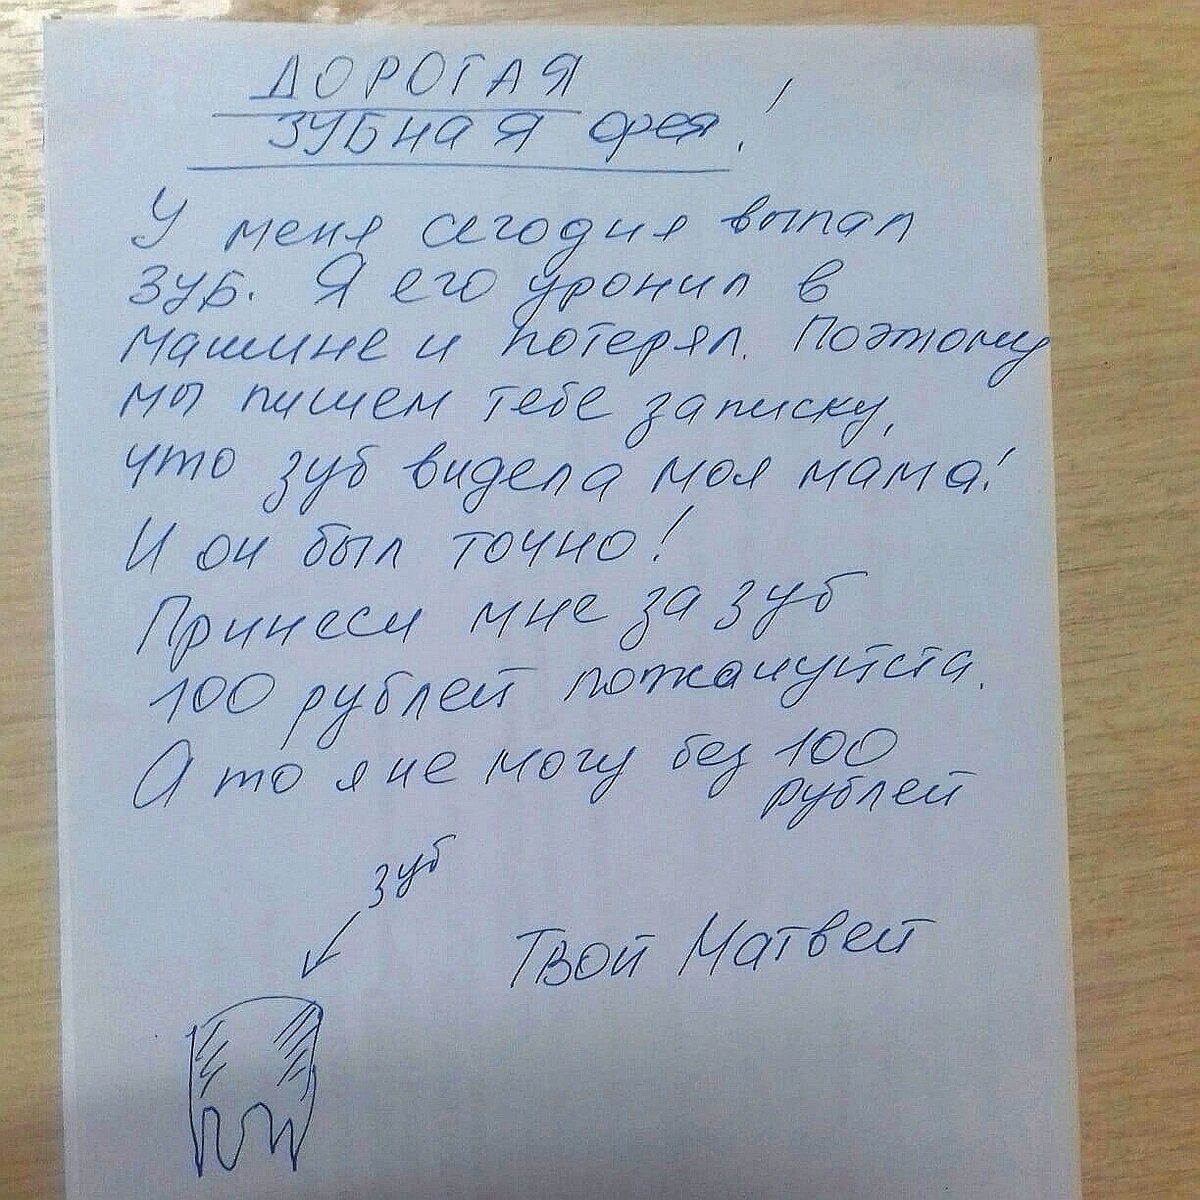 ДОРОГАЯ
ЗУБНАЯ фея!
У меня сегодня выпал
зуб. Я его уронил в
машине и потерял. Поэтому
мы пишем тебе записку,
что зуб видела моя мама!
И он был точно!
Принеси мне за зуб
100 рублей пожалуйста.
А то я не могу без 100
рублей
зуб
Твой Матвей